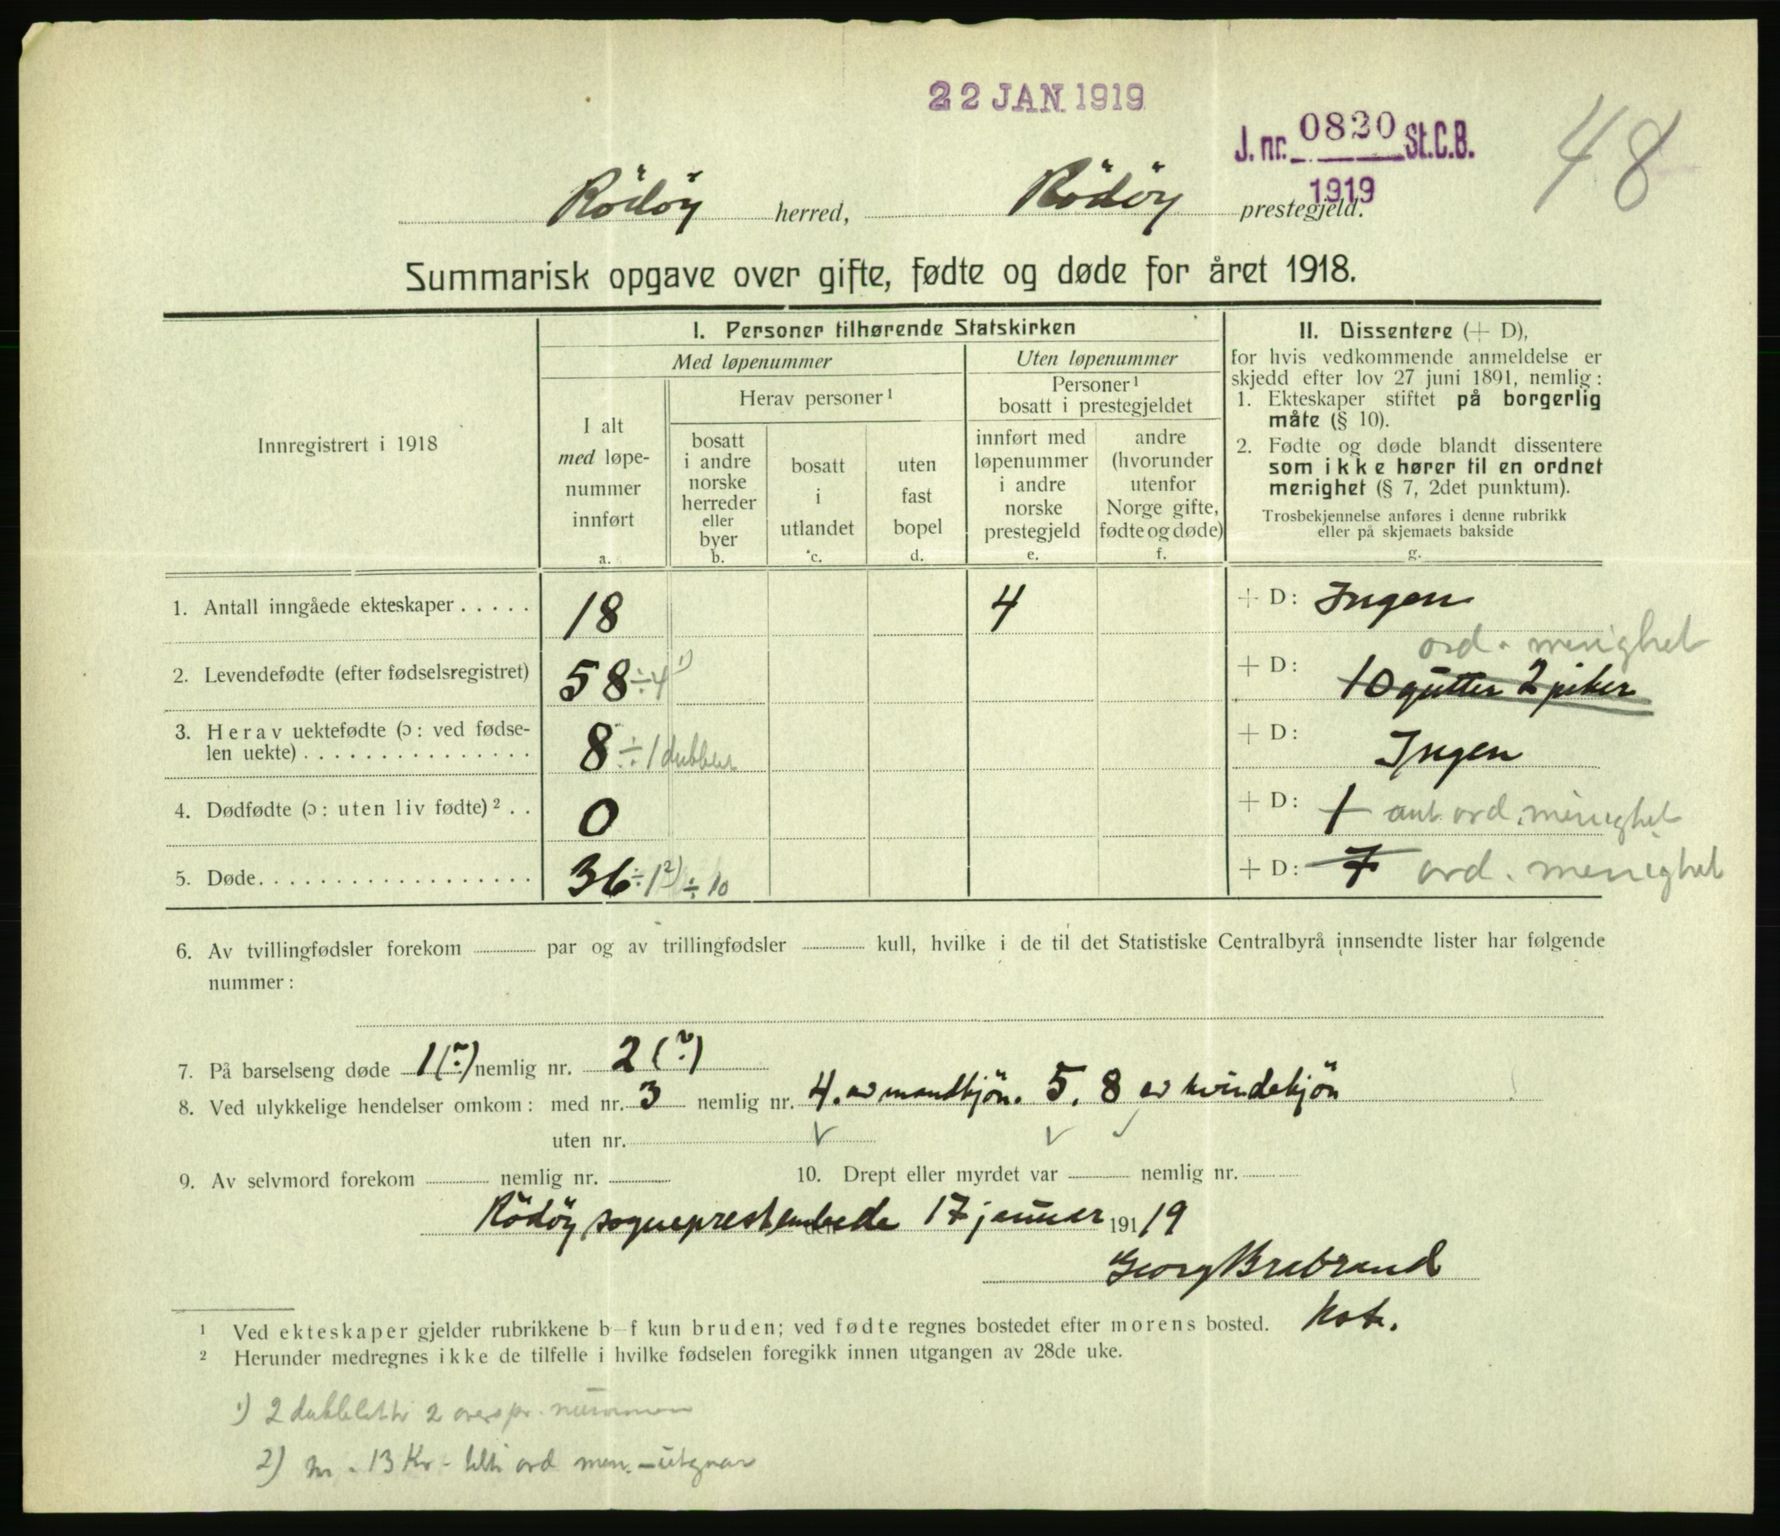 22 JAN 1919
J. nr. 0820 St.C.B.
1919
48
Rödöy herred, Rödöy prestegjeld.
Summarisk opgave over gifte, fødte og døde for året 1918.
Innregistrert i 1918
I. Personer tilhørende Statskirken
Med løpenummer
Uten løpenummer
I alt
med løpe-
nummer
innført
a.
Herav personer ¹
bosatt
i andre
norske
herreder
eller
byer
b.
bosatt
i
utlandet
c.
uten
fast
bopel
d.
Personer ¹
bosatt i prestegjeldet
innført med
løpenummer
i andre
norske
prestegjeld
e.
andre
(hvorunder
utenfor
Norge gifte,
fødte og døde)
f.
II. Dissentere (+ D),
for hvis vedkommende anmeldelse er
skjedd efter lov 27 juni 1891, nemlig:
1. Ekteskaper stiftet på borgerlig
måte (§ 10).
2. Fødte og døde blandt dissentere
som ikke hører til en ordnet
menighet (§ 7, 2det punktum).
Trosbekjennelse anføres i denne rubrikk
eller på skjemaets bakside
g.
1. Antall inngåede ekteskaper . . . . . 18 4 + D: Ingen
ord. menighet
2. Levendefødte (efter fødselsregistret) 58 ÷ 4 ¹) + D: 10 gutter 2 piker
3. Herav uektefødte (ɔ: ved fødse-
len uekte) . . . . . . . . . . . . . . . 8 ÷ 1 dubblet + D: Ingen
4. Dødfødte (ɔ: uten liv fødte) ² . . 0 + D: 1 ord. menighet
5. Døde. . . . . . . . . . . . . . . . . . . 36 ÷ 1 ²) ÷ 10 + D: 7 ord. menighet
6. Av tvillingfødsler forekom par og av trillingfødsler kull, hvilke i de til det Statistiske Centralbyrå innsendte lister har følgende
nummer:
7. På barselseng døde 1 (?) nemlig nr. 2 (?)
8. Ved ulykkelige hendelser omkom: med nr. 3 nemlig nr. 4. av mandkjön. 5. 8 av kvindekjön
uten nr.
9. Av selvmord forekom nemlig nr. 10. Drept eller myrdet var nemlig nr.
Rödöy sogneprestembede den 17 januar 191 19
Georg Brabrand
¹ Ved ekteskaper gjelder rubrikkene b–f kun bruden; ved fødte regnes bostedet efter morens bosted.
² Herunder medregnes ikke de tilfelle i hvilke fødselen foregikk innen utgangen av 28de uke.
1) 2 dubbletter 2 overspr. nummer
2) nr. 13 Kv. ord men. – utgaar